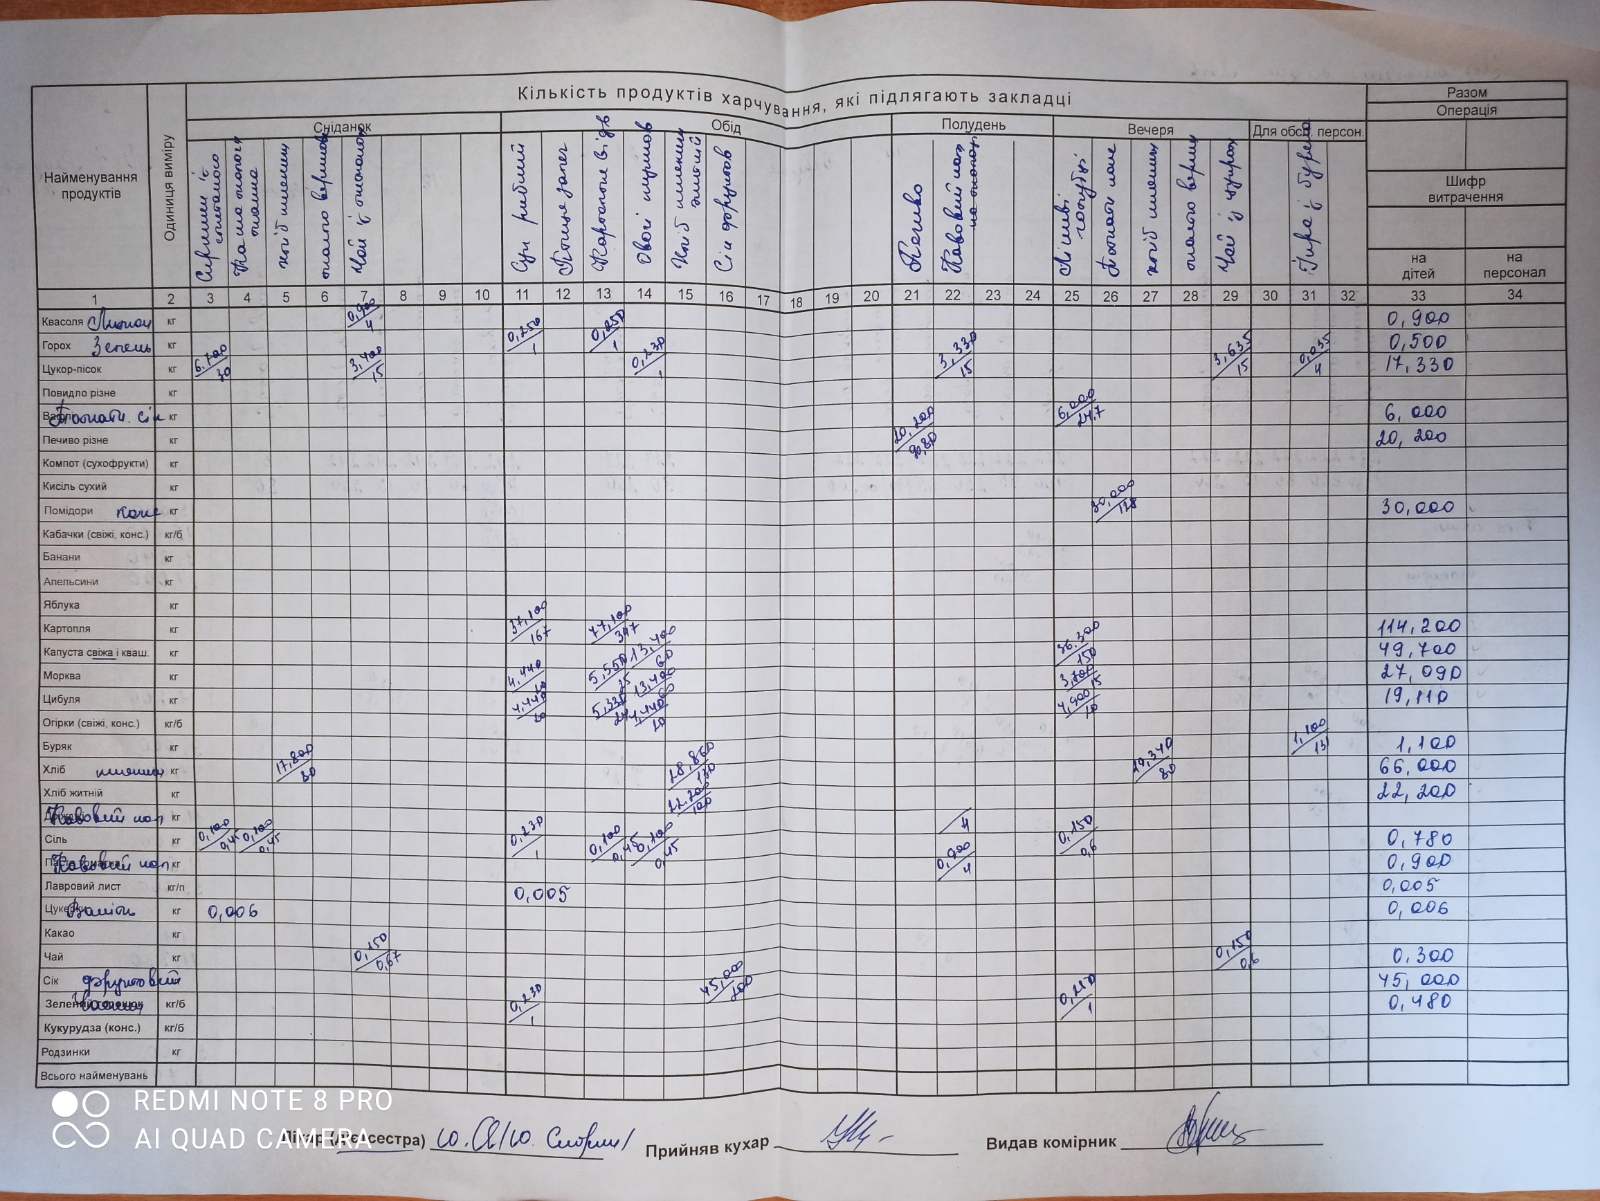 Кількість продуктів харчування, які підлягають закладці
Разом
Операція
Найменування продуктів
Одиниця виміру
Сніданок
Обід
Полудень
Вечеря
Для обсл. персон.
Шифр витрачення
на дітей
на персонал
хліб пшенич
Суп рибний
Хліб пшенич житній
Сік фруктов
Печиво
Кавовий нап на молоці
хліб пшенич
масло верш
Чай із цукром
1 2 3 4 5 6 7 8 9 10 11 12 13 14 15 16 17 18 19 20 21 22 23 24 25 26 27 28 29 30 31 32 33 34
Квасоля Лимон кг 0,900/4 0,900
Горох Зелень кг 0,250/1 0,250/1 0,500
Цукор-пісок кг 6.700/30 3,400/15 0,230/1 3,330/15 3,635/15 0,035/4 17,330
Повидло різне кг
Томатн. сік кг 6,000/247 6,000
Печиво різне кг 20,200/90,80 20,200
Компот (сухофрукти) кг
Кисіль сухий кг
Помідори конс кг 30,000/128 30,000
Кабачки (свіжі, конс.) кг/б
Банани кг
Апельсини кг
Яблука кг
Картопля кг 37,100/167 77,100/347 114,200
Капуста свіжа і кваш. кг 13,400/60 36.300/150 49,700
Морква кг 4,440/20 5,550/25 13,400/60 3,700/15 27,090
Цибуля кг 4,440/20 5,330/24 4,440/20 4,900/20 19,110
Огірки (свіжі, конс.) кг/б
Буряк кг 1,100/131 1,100
Хліб пшенич кг 17,800/80 28,860/130 19,340/80 66,000
Хліб житній кг 22,200/100 22,200
Кавовий нап кг /4
Сіль кг 0,100/0,45 0,100/0,45 0,230/1 0,100/0,45 0,100/0,45 0,150/0,6 0,780
Кавовий нап кг 0,900/4 0,900
Лавровий лист кг/п 0,005 0,005
Ванілін кг 0,006 0,006
Какао кг
Чай кг 0,150/0,67 0,150/0,6 0,300
Сік фруктовий кг 45,000/200 45,000
кг/б 0,230/1 0,250/1 0,480
Кукурудза (конс.) кг/б
Родзинки кг
Всього найменувань
REDMI NOTE 8 PRO
AI QUAD CAMERA
Прийняв кухар
Видав комірник